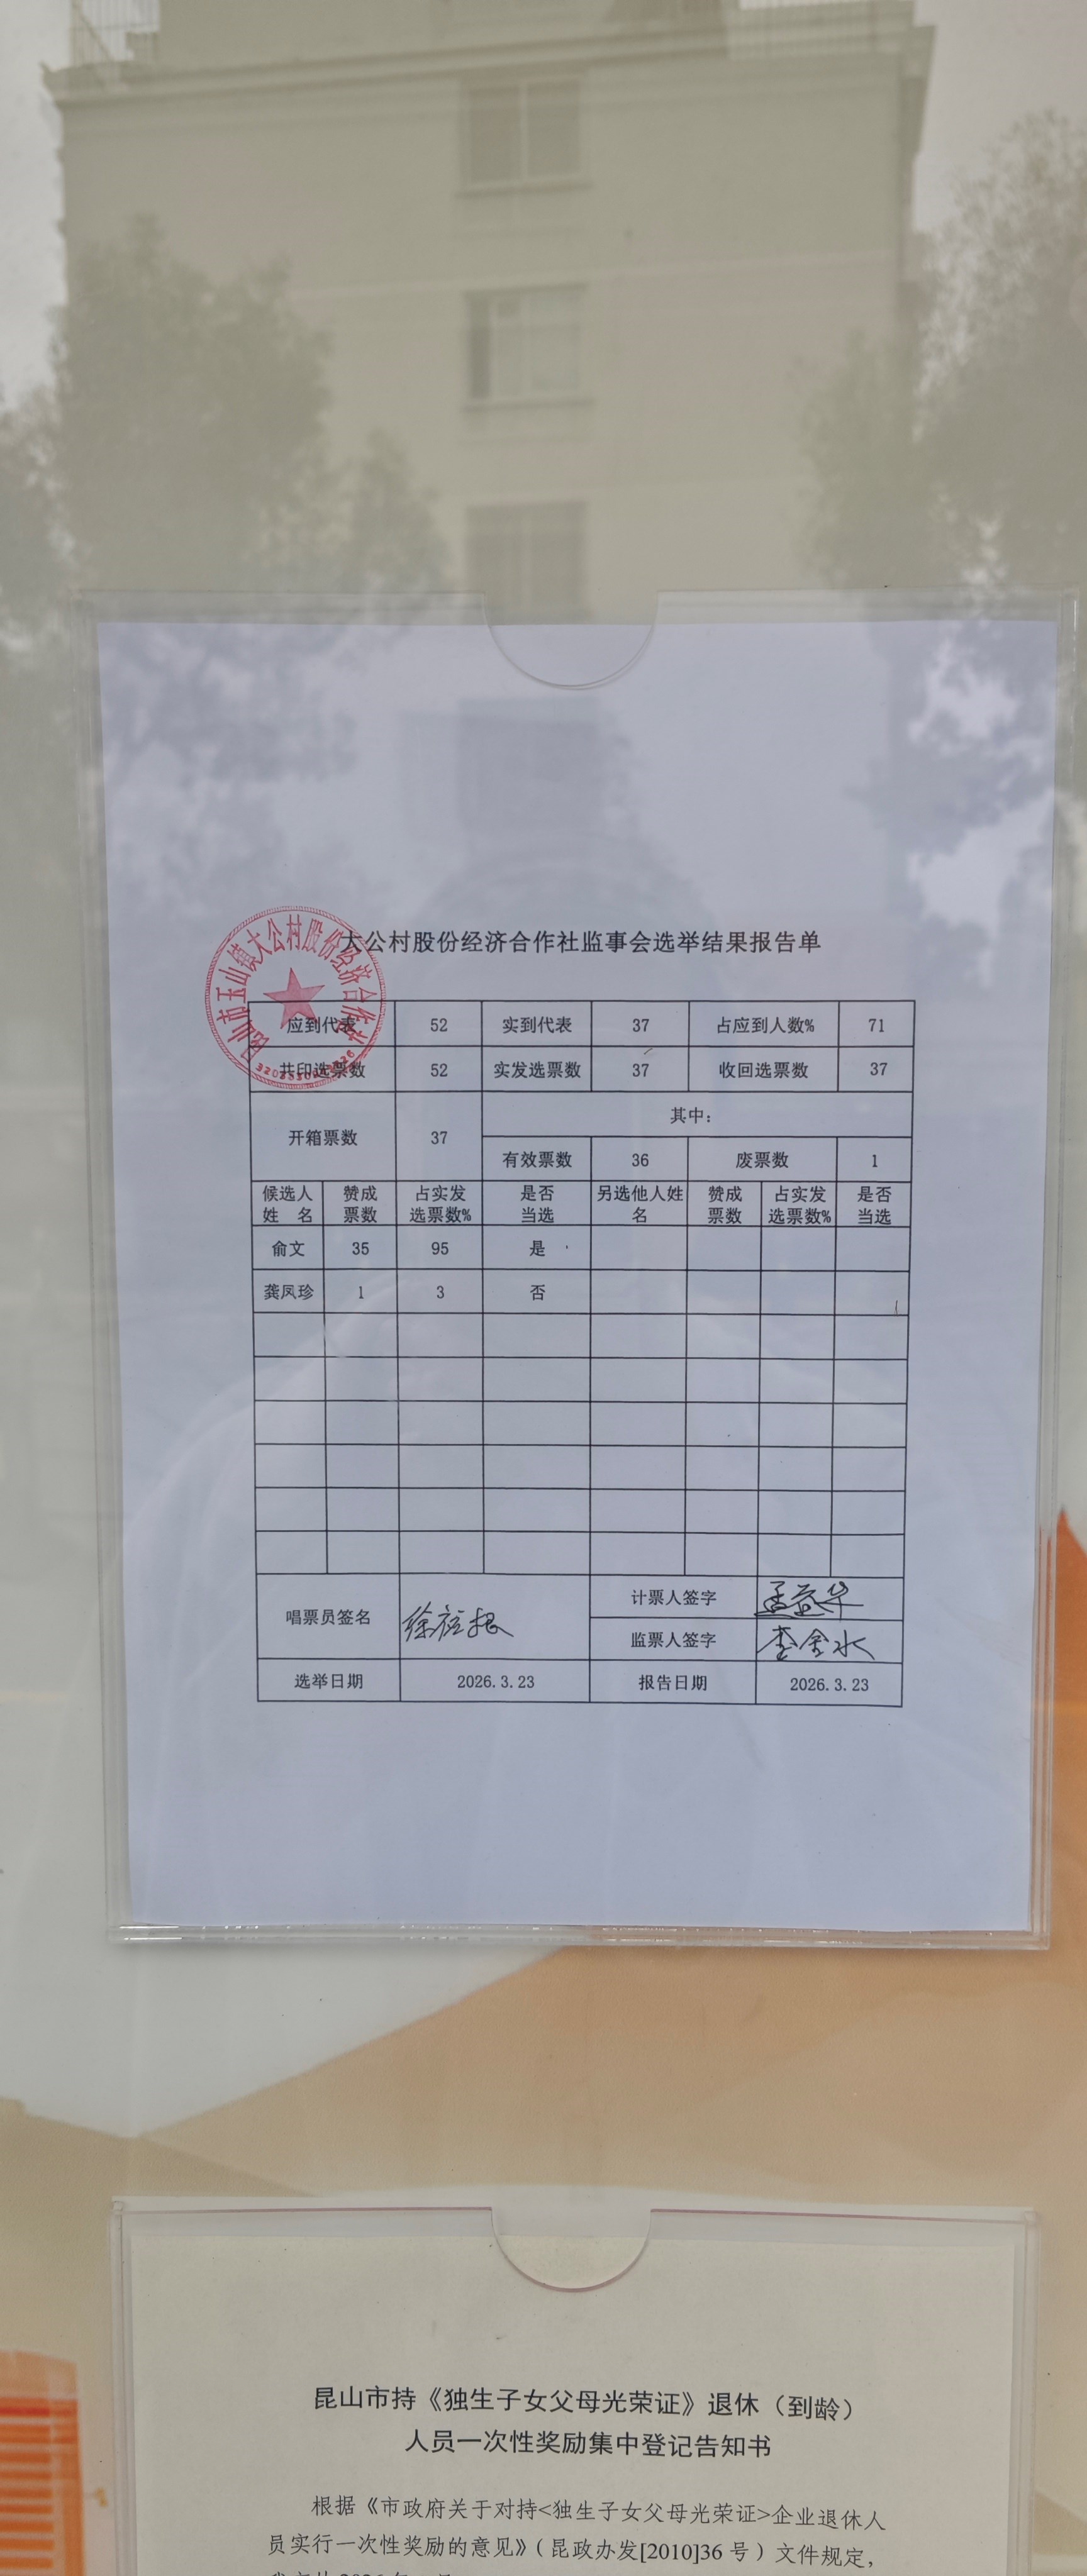 大公村股份经济合作社监事会选举结果报告单
昆山市玉山镇大公村股份经济合作社
应到代表 52 实到代表 37 占应到人数% 71
共印选票数 52 实发选票数 37 收回选票数 37
开箱票数 37 其中:
有效票数 36 废票数 1
候选人姓 名 赞成票数 占实发选票数% 是否当选 另选他人姓名 赞成票数 占实发选票数% 是否当选
俞文 35 95 是
龚凤珍 1 3 否
唱票员签名 计票人签字
监票人签字 李金水
选举日期 2026.3.23 报告日期 2026.3.23
昆山市持《独生子女父母光荣证》退休（到龄）
人员一次性奖励集中登记告知书
根据《市政府关于对持<独生子女父母光荣证>企业退休人
员实行一次性奖励的意见》（昆政办发[2010]36 号）文件规定，